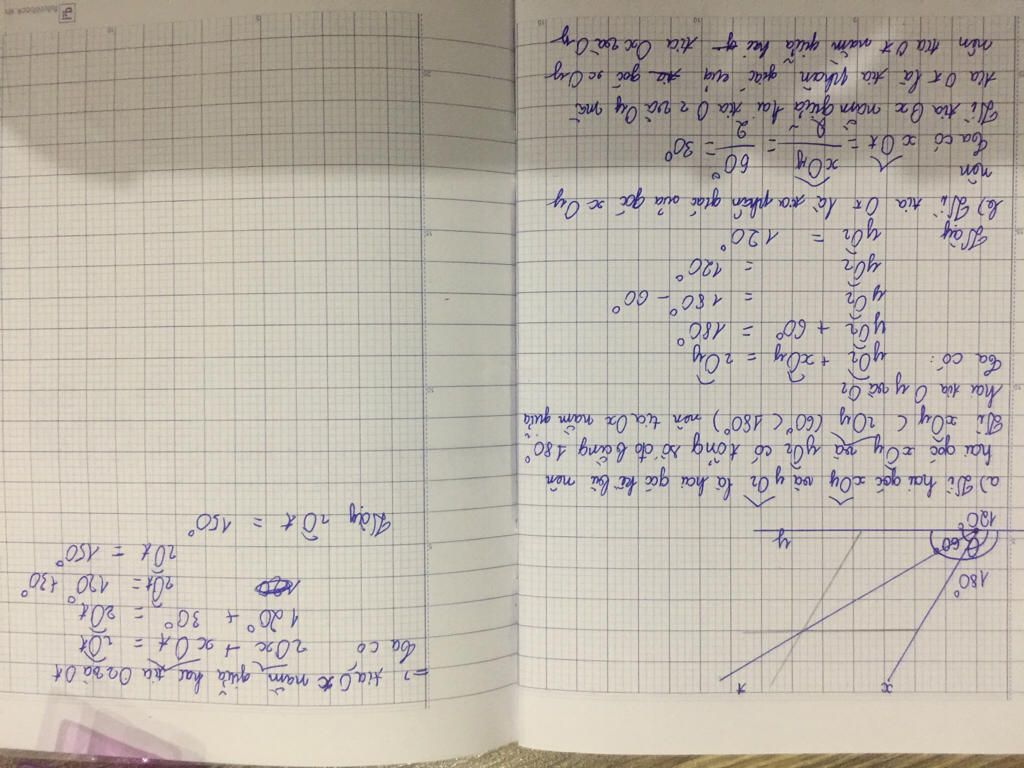 x t
180°
O 60° y
120°
a) Vì hai góc xOy và yOz là hai góc kề bù nên
hai góc xOy và yOz có tổng số đo bằng 180°
Vì xOy < zOy (60° < 180°) nên tia Ox nằm giữa
hai tia Oy và Oz
Ta có: yOz + xOy = zOy
yOz + 60° = 180°
yOz = 180° - 60°
yOz = 120°
Vậy yOz = 120°
b) Vì tia Ot là tia phân giác của góc xOy
nên
Ta có xOt = xOy/2 = 60°/2 = 30°
Vì tia Ox nằm giữa hai tia Oz và Oy mà
tia Ot là tia phân giác của góc xOy
nên tia Ot nằm giữa hai tia Ox và Oy
=> tia Ox nằm giữa hai tia Oz và Ot
Ta có zOx + xOt = zOt
120° + 30° = zOt
zOt = 120° + 30°
zOt = 150°
Vậy zOt = 150°